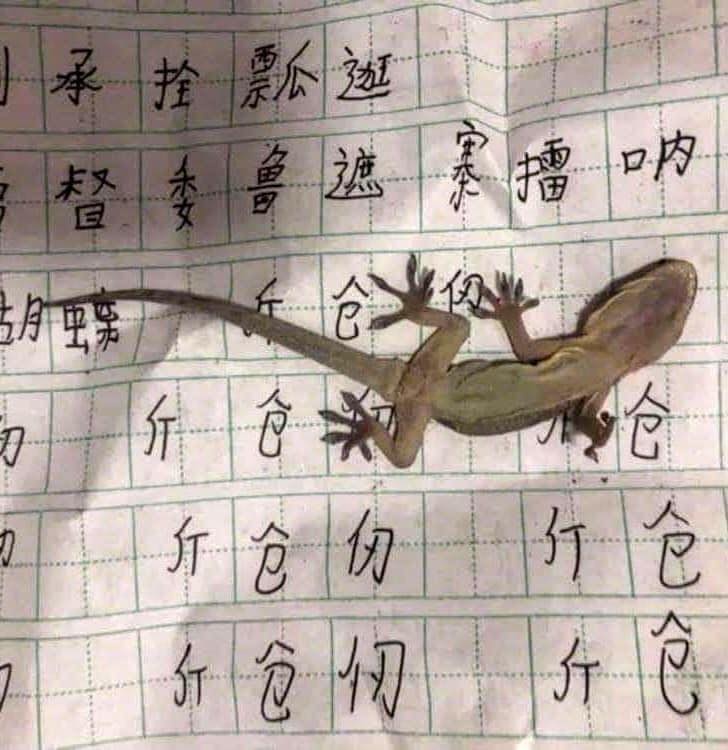 承 拴 瓢 逛
督 委 魯 遮 寨 擂 吶
胡 蝶 斤 仓 仞
仞 斤 仓 仞 斤 仓
斤 仓 仞 斤 仓
斤 仓 仞 斤 仓